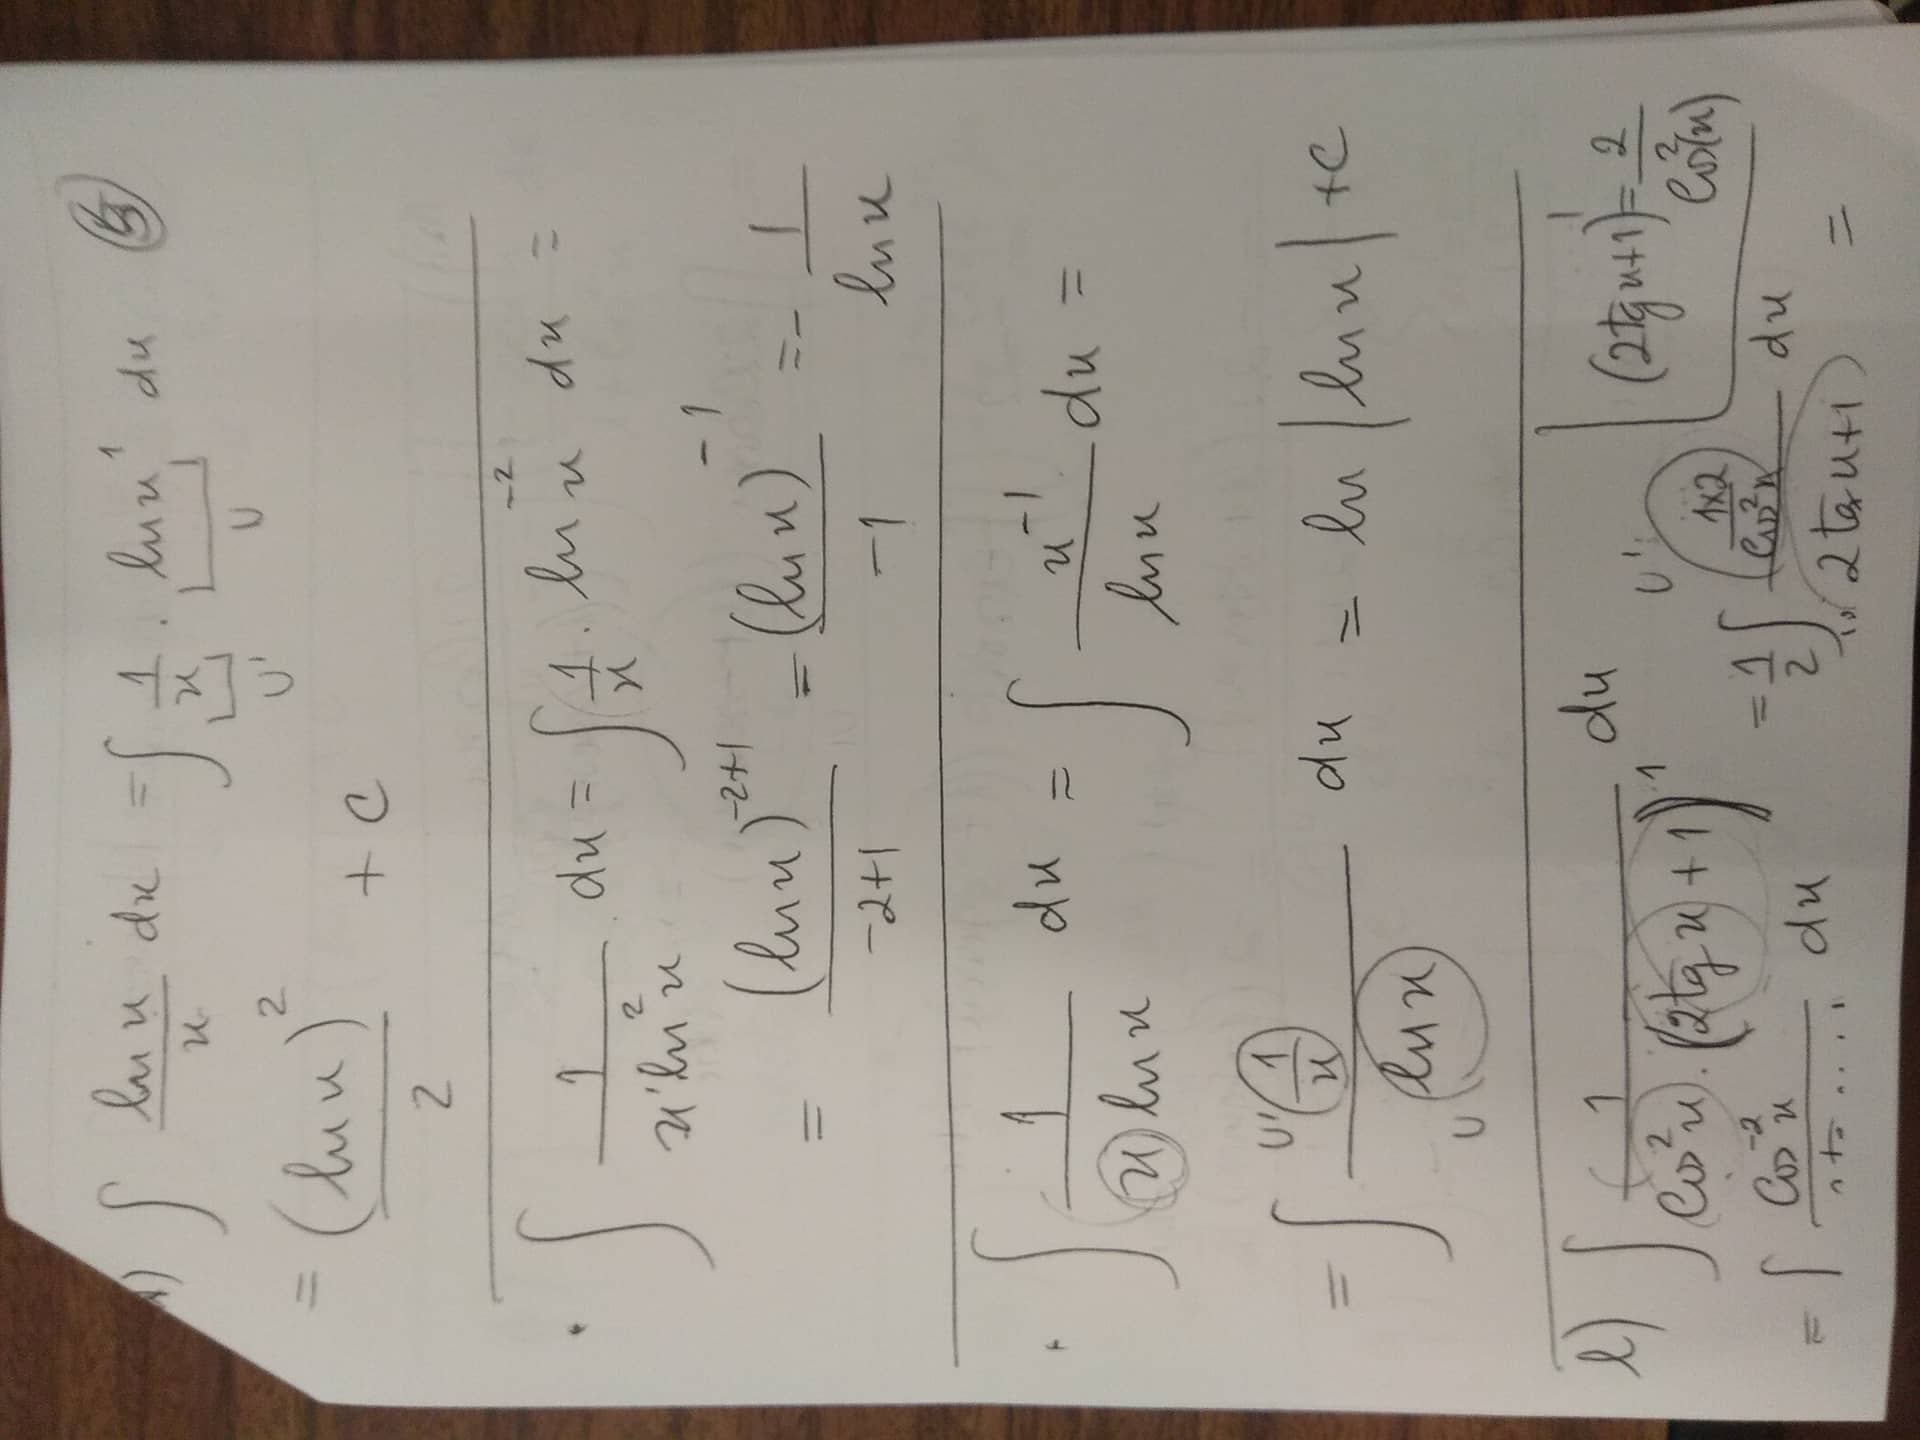 ∫ ln x / x dx = ∫ 1/x · ln x¹ dx
U' U
= (ln x)² / 2 + c
∫ 1 / (x¹ ln² x) dx = ∫ 1/x · ln⁻² x dx =
= (ln x)⁻²⁺¹ / (-2+1) = (ln x)⁻¹ / -1 = - 1 / ln x
∫ 1 / (x ln x) dx = ∫ x⁻¹ / ln x dx =
= ∫ U' (1/x) / U (ln x) dx = ln |ln x| + c
l) ∫ 1 / (cos² x · (2tg x + 1)¹) dx
(2tg x + 1)' = 2 / cos²(x)
= ∫ cos⁻² x / dx = 1/2 ∫ U' (1x2 / cos² x) / (2tg x + 1) dx =